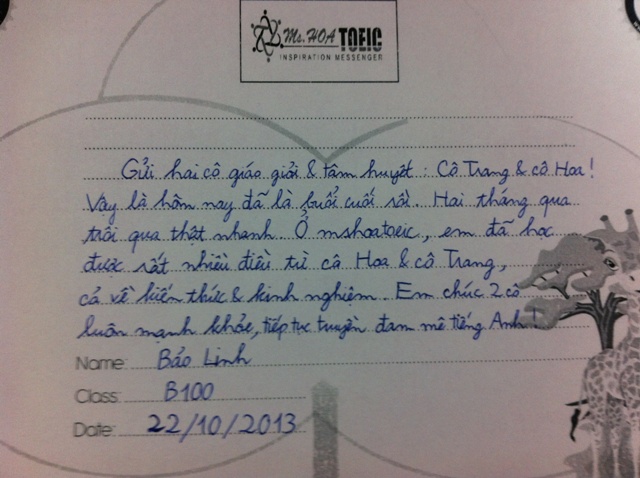 Ms. HOA TOEIC
INSPIRATION MESSENGER
Gửi hai cô giáo giỏi & tâm huyết : Cô Trang & cô Hoa !
Vậy là hôm nay đã là buổi cuối rồi. Hai tháng qua
trôi qua thật nhanh. Ở mshoatoeic, em đã học
được rất nhiều điều từ cô Hoa & cô Trang,
cả về kiến thức & kinh nghiệm. Em chúc 2 cô
luôn mạnh khỏe, tiếp tục truyền đam mê tiếng Anh !
Name: Bảo Linh
Class: B100
Date: 22/10/2013